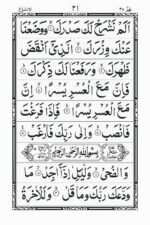 ٣١
اَلَمْ نَشْرَحْ لَكَ صَدْرَكَ ۝ وَوَضَعْنَا
عَنْكَ وِزْرَكَ ۝ الَّذِيْٓ اَنْقَضَ
ظَهْرَكَ ۝ وَرَفَعْنَا لَكَ ذِكْرَكَ ۝
فَاِنَّ مَعَ الْعُسْرِ يُسْرًا ۝ اِنَّ
مَعَ الْعُسْرِ يُسْرًا ۝ فَاِذَا فَرَغْتَ
فَانْصَبْ ۝ وَاِلٰى رَبِّكَ فَارْغَبْ ۝
بِسْمِ اللّٰهِ الرَّحْمٰنِ الرَّحِيْمِ
وَالضُّحٰى ۝ وَالَّيْلِ اِذَا سَجٰى ۝ مَا
وَدَّعَكَ رَبُّكَ وَمَا قَلٰى ۝ وَلَلْاٰخِرَةُ